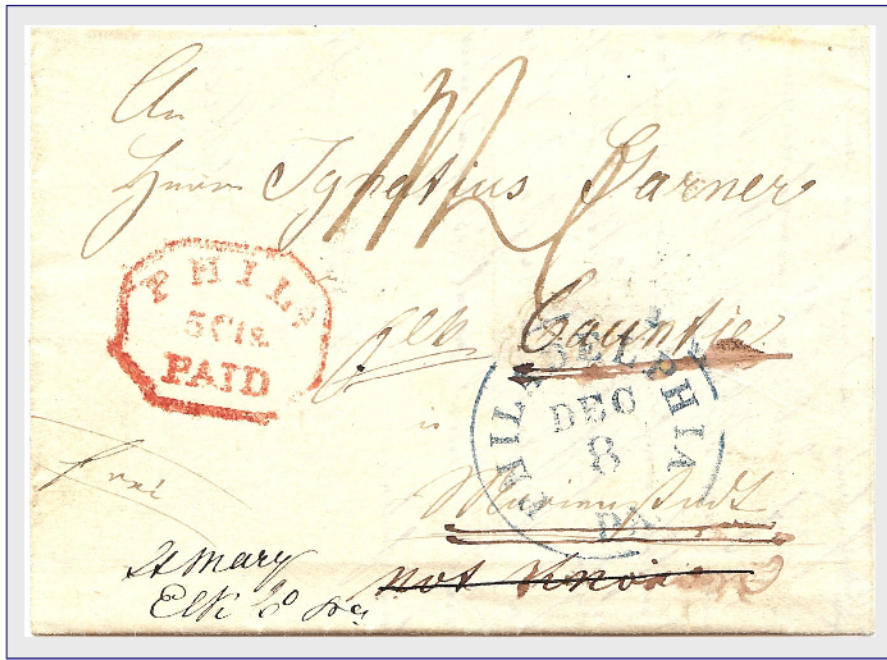 An
Herrn Ignatius Garner
PHILA
5 Cts.
PAID
Elk Cauntie
PHILADELPHIA
DEC
8
PA.
in
frei
Marienstadt
St Mary
Elk Co
not known